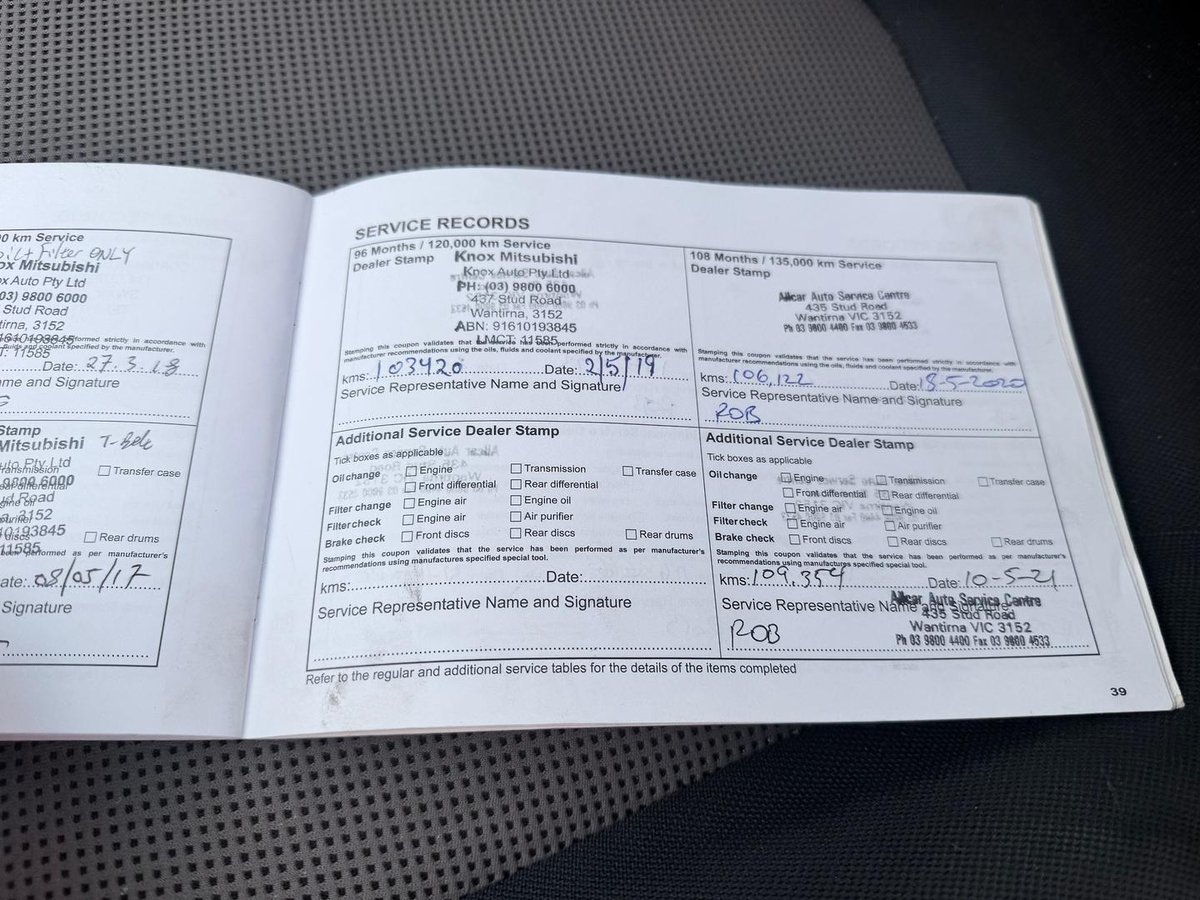 0 km Service
Filter ONLY
ox Mitsubishi
x Auto Pty Ltd
03) 9800 6000
Stud Road
tirna, 3152
T: 11585
performed strictly in accordance with
fluids and coolant specified by the manufacturer.
Date: 27.3.18
me and Signature
Stamp
Mitsubishi T-Belt
uto Pty Ltd
Transfer case
9800 6000
ud Road
a, 3152
10193845
Rear drums
11585
performed as per manufacturer's
ate: 08/05/17
Signature
SERVICE RECORDS
96 Months / 120,000 km Service
Dealer Stamp
Knox Mitsubishi
Knox Auto Pty Ltd
PH: (03) 9800 6000
437 Stud Road
Wantirna, 3152
ABN: 91610193845
LMCT: 11585
Stamping this coupon validates that the service has been performed strictly in accordance with
manufacturer recommendations using the oils, fluids and coolant specified by the manufacturer.
kms: 103420 Date: 2/5/19
Service Representative Name and Signature
Additional Service Dealer Stamp
Tick boxes as applicable
Oil change Engine Transmission Transfer case
Front differential Rear differential
Filter change Engine air Engine oil
Filter check Engine air Air purifier
Brake check Front discs Rear discs Rear drums
Stamping this coupon validates that the service has been performed as per manufacturer's
recommendations using manufactures specified special tool.
kms: Date:
Service Representative Name and Signature
108 Months / 135,000 km Service
Dealer Stamp
Allcar Auto Service Centre
435 Stud Road
Wantirna VIC 3152
Ph 03 9800 4400 Fax 03 9800 4533
Stamping this coupon validates that the service has been performed strictly in accordance with
manufacturer recommendations using the oils, fluids and coolant specified by the manufacturer.
kms: 106,122 Date: 18-5-2020
Service Representative Name and Signature
ROB
Additional Service Dealer Stamp
Tick boxes as applicable
Oil change Engine Transmission Transfer case
Front differential Rear differential
Filter change Engine air Engine oil
Filter check Engine air Air purifier
Brake check Front discs Rear discs Rear drums
Stamping this coupon validates that the service has been performed as per manufacturer's
recommendations using manufactures specified special tool.
kms: 109,354 Date: 10-5-21
Service Representative Name and Signature
ROB
Allcar Auto Service Centre
435 Stud Road
Wantirna VIC 3152
Ph 03 9800 4400 Fax 03 9800 4533
Refer to the regular and additional service tables for the details of the items completed
39